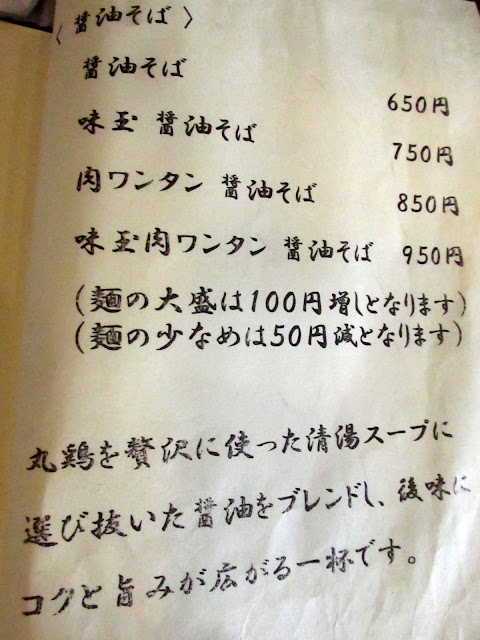 〈醤油そば〉
醤油そば 650円
味玉 醤油そば 750円
肉ワンタン 醤油そば 850円
味玉肉ワンタン 醤油そば 950円
(麺の大盛は100円増しとなります)
(麺の少なめは50円減となります)
丸鶏を贅沢に使った清湯スープに
選び抜いた醤油をブレンドし、後味に
コクと旨みが広がる一杯です。